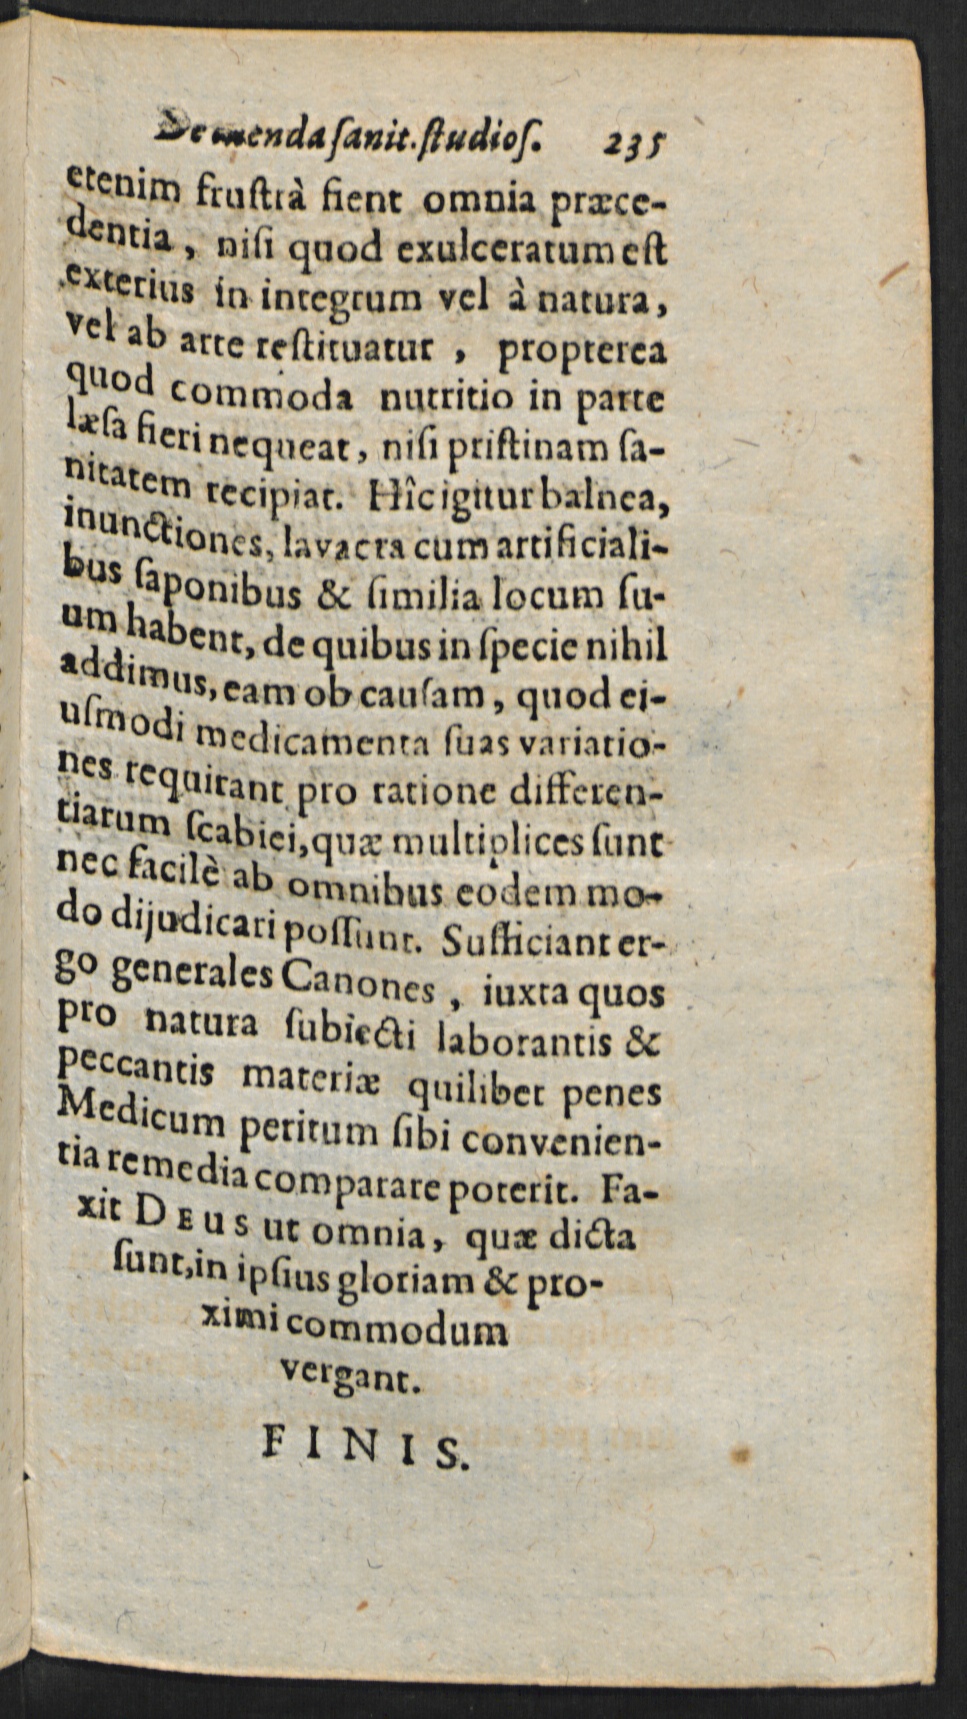 De tuenda ſanit. ſtudioſ. 235
etenim fruſtrà fient omnia præce-
dentia, niſi quod exulceratum eſt
exterius in integrum vel à natura,
vel ab arte reſtituatur, propterea
quod commoda nutritio in parte
læſa fieri nequeat, niſi priſtinam ſa-
nitatem recipiat. Hîc igitur balnea,
inunctiones, lavacra cum artificiali-
bus ſaponibus & ſimilia locum ſu-
um habent, de quibus in ſpecie nihil
addimus, eam ob cauſam, quod ei-
uſmodi medicamenta ſuas variatio-
nes requirant pro ratione differen-
tiarum ſcabiei, quæ multiplices ſunt
nec facilè ab omnibus eodem mo-
do dijudicari poſſunt. Sufficiant er-
go generales Canones, iuxta quos
pro natura ſubiecti laborantis &
peccantis materiæ quilibet penes
Medicum peritum ſibi convenien-
tia remedia comparare poterit. Fa-
xit DEUS ut omnia, quæ dicta
ſunt, in ipſius gloriam & pro-
ximi commodum
vergant.
FINIS.